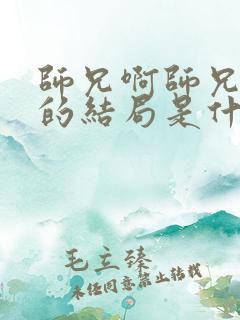 師兄啊師兄
的結局是什
毛立臻
未經同意禁止转载